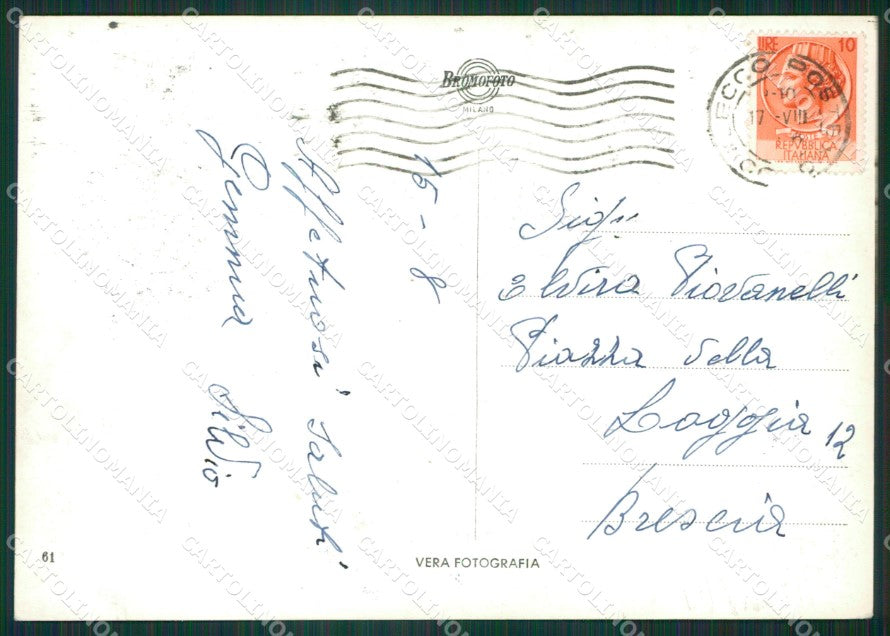 BROMOFOTO
MILANO
LIRE 10
REPVBBLICA
ITALIANA
17 -VIII
15-8
Affettuosi saluti
Gemma Silvio
Sig.
Elvira Piovanelli
Piazza della
Loggia 12
Brescia
61
VERA FOTOGRAFIA
CARTOLINOMANIA